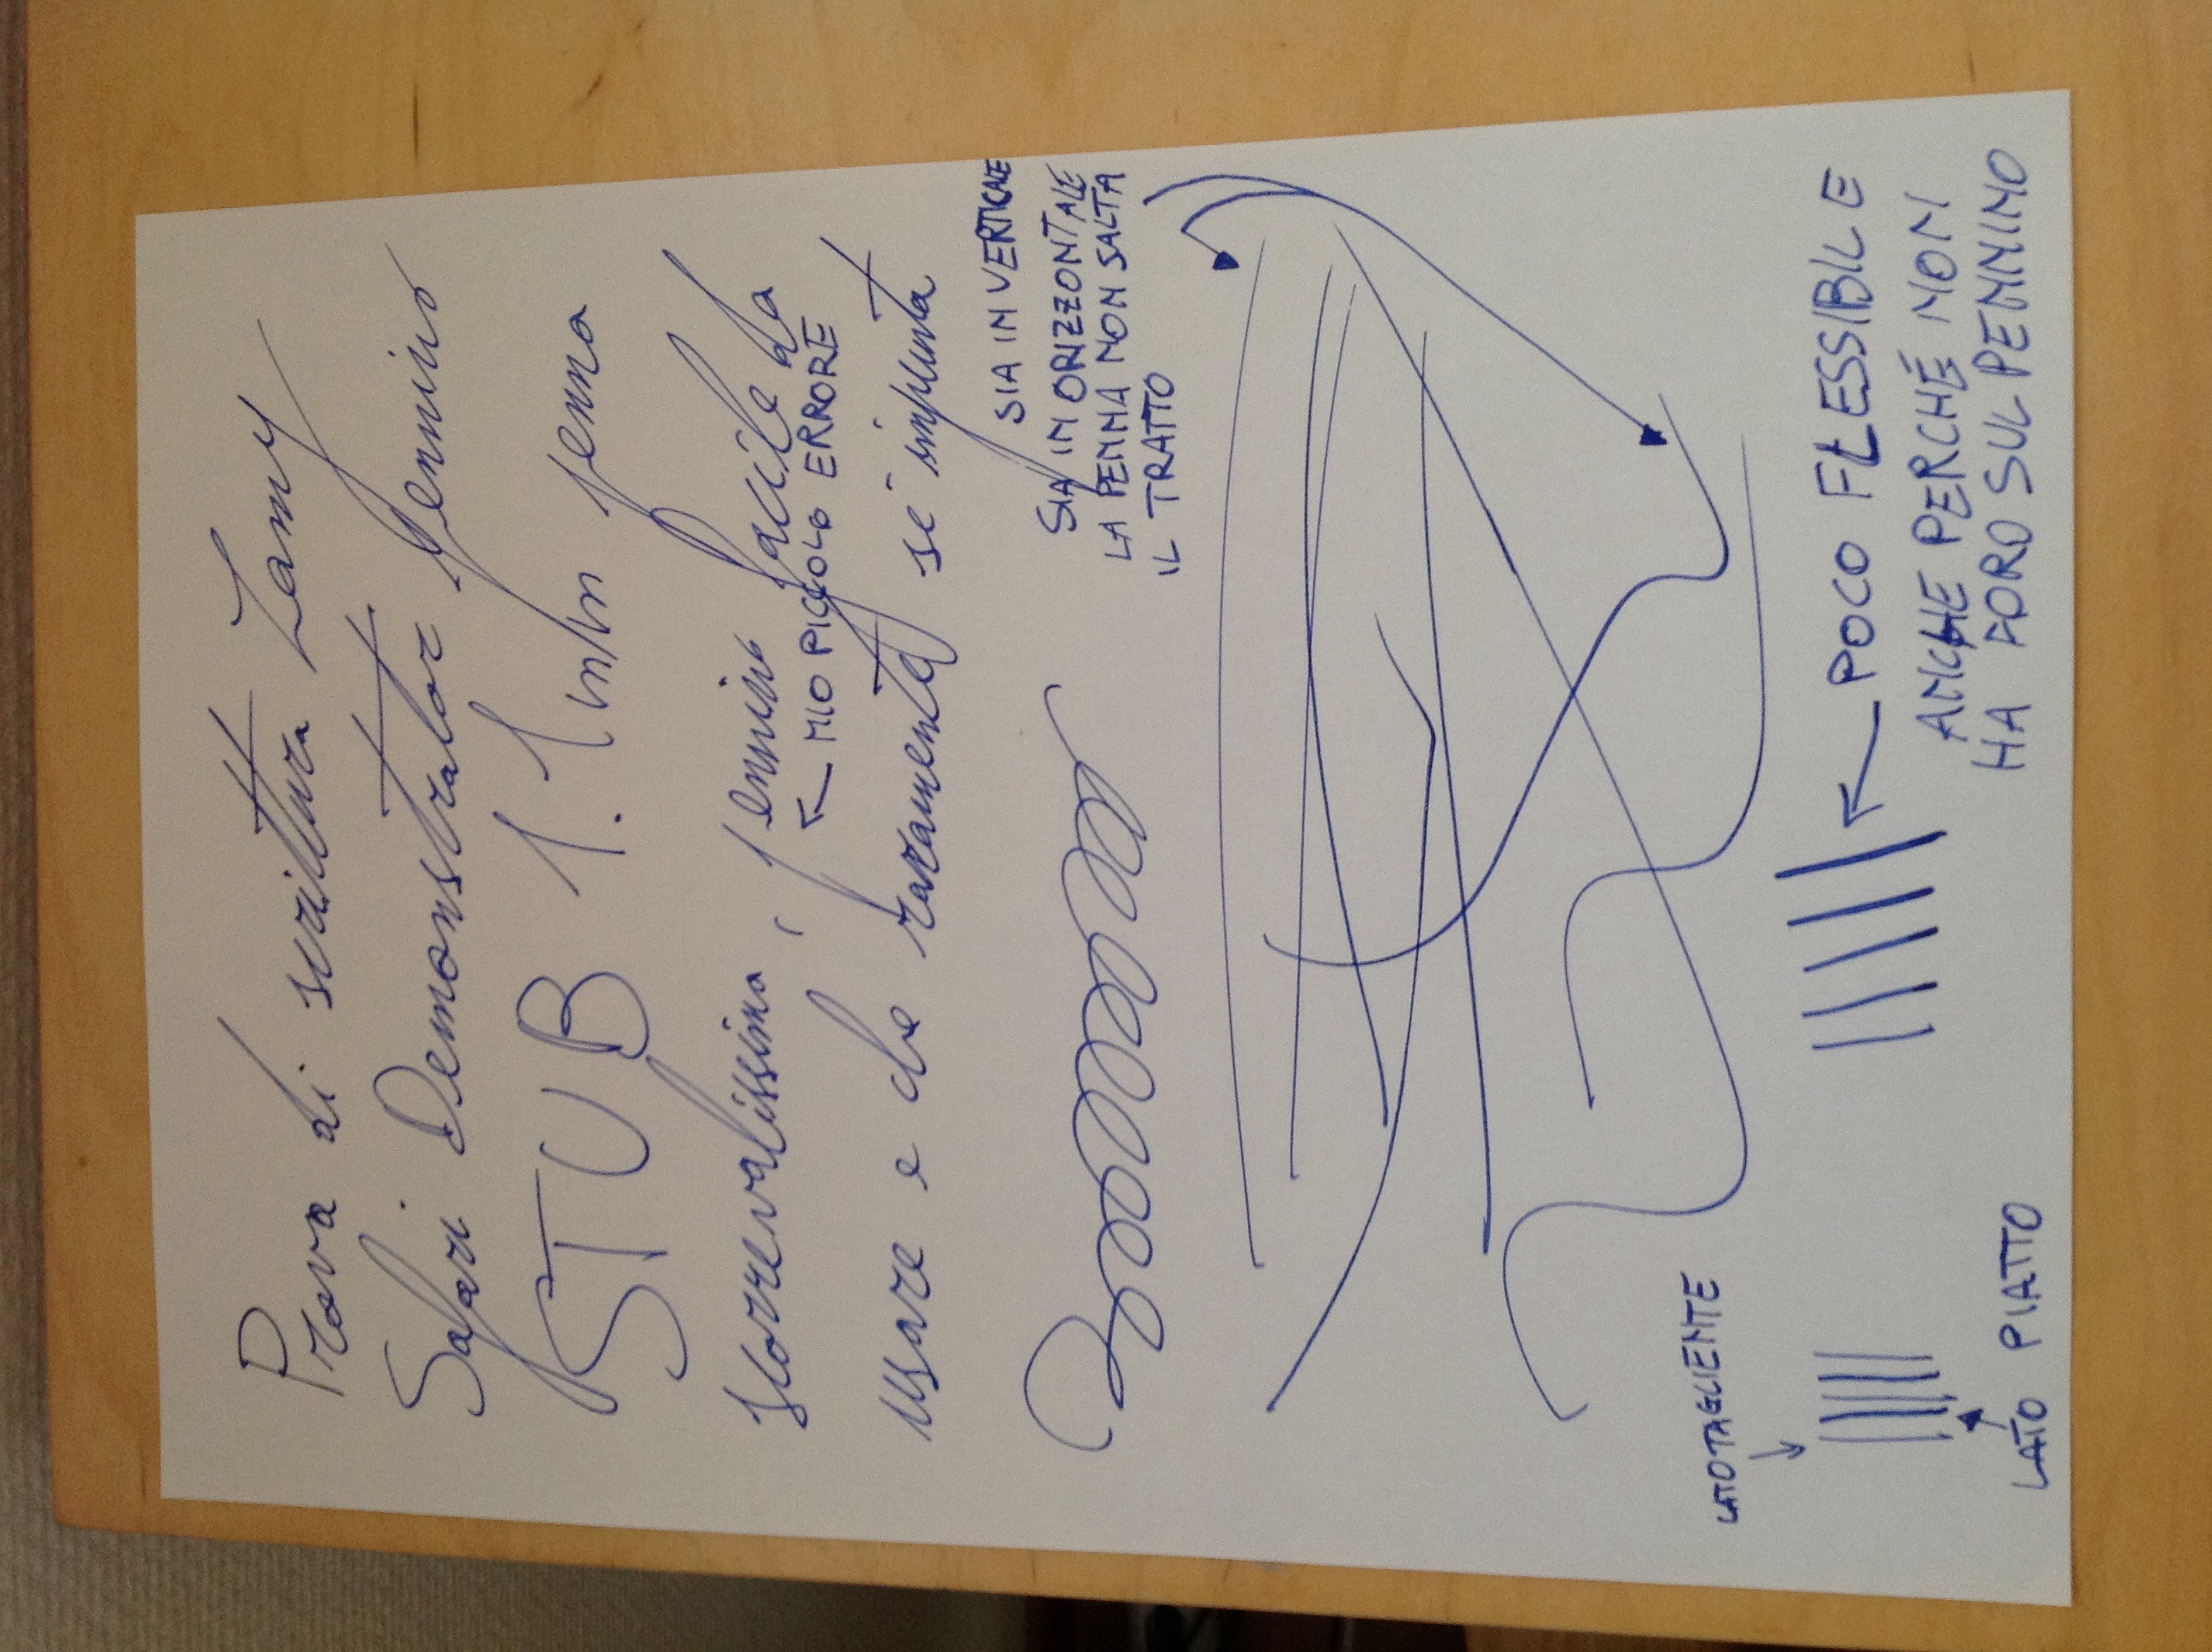 Prova di scrittura Lamy
Safari Demonstrator pennino
STUB 1.1 m/m penna
scorrevolissima, pennino facile da
← MIO PICCOLO ERRORE
usare e che raramente si impunta
SIA IN VERTICALE
SIA IN ORIZZONTALE
LA PENNA NON SALTA
IL TRATTO
LATO TAGLIENTE
LATO PIATTO
← POCO FLESSIBILE
ANCHE PERCHÉ NON
HA FORO SUL PENNINO